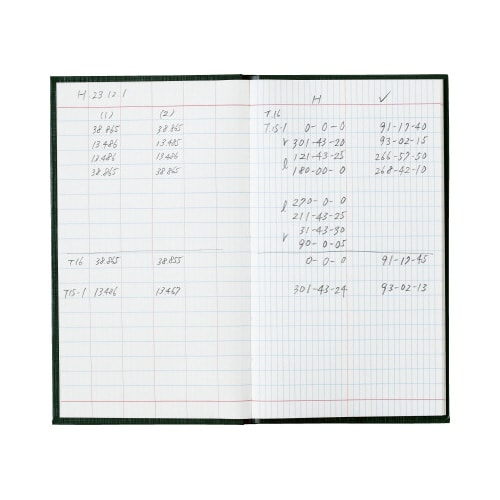 H 23.12.1
(1) (2)
38.865 38.865
13.486 13.485
13.486 13.486
38.865 38.865
T16 38.865 38.855
T15-1 13.486 13.487
H V
T.16
T15-1 0-0-0 91-17-40
r 301-43-20 93-02-15
l 121-43-25 266-57-50
180-00-0 268-42-10
l 270-0-0
211-43-25
r 31-43-30
90-0-05
0-0-0 91-17-45
301-43-24 93-02-13